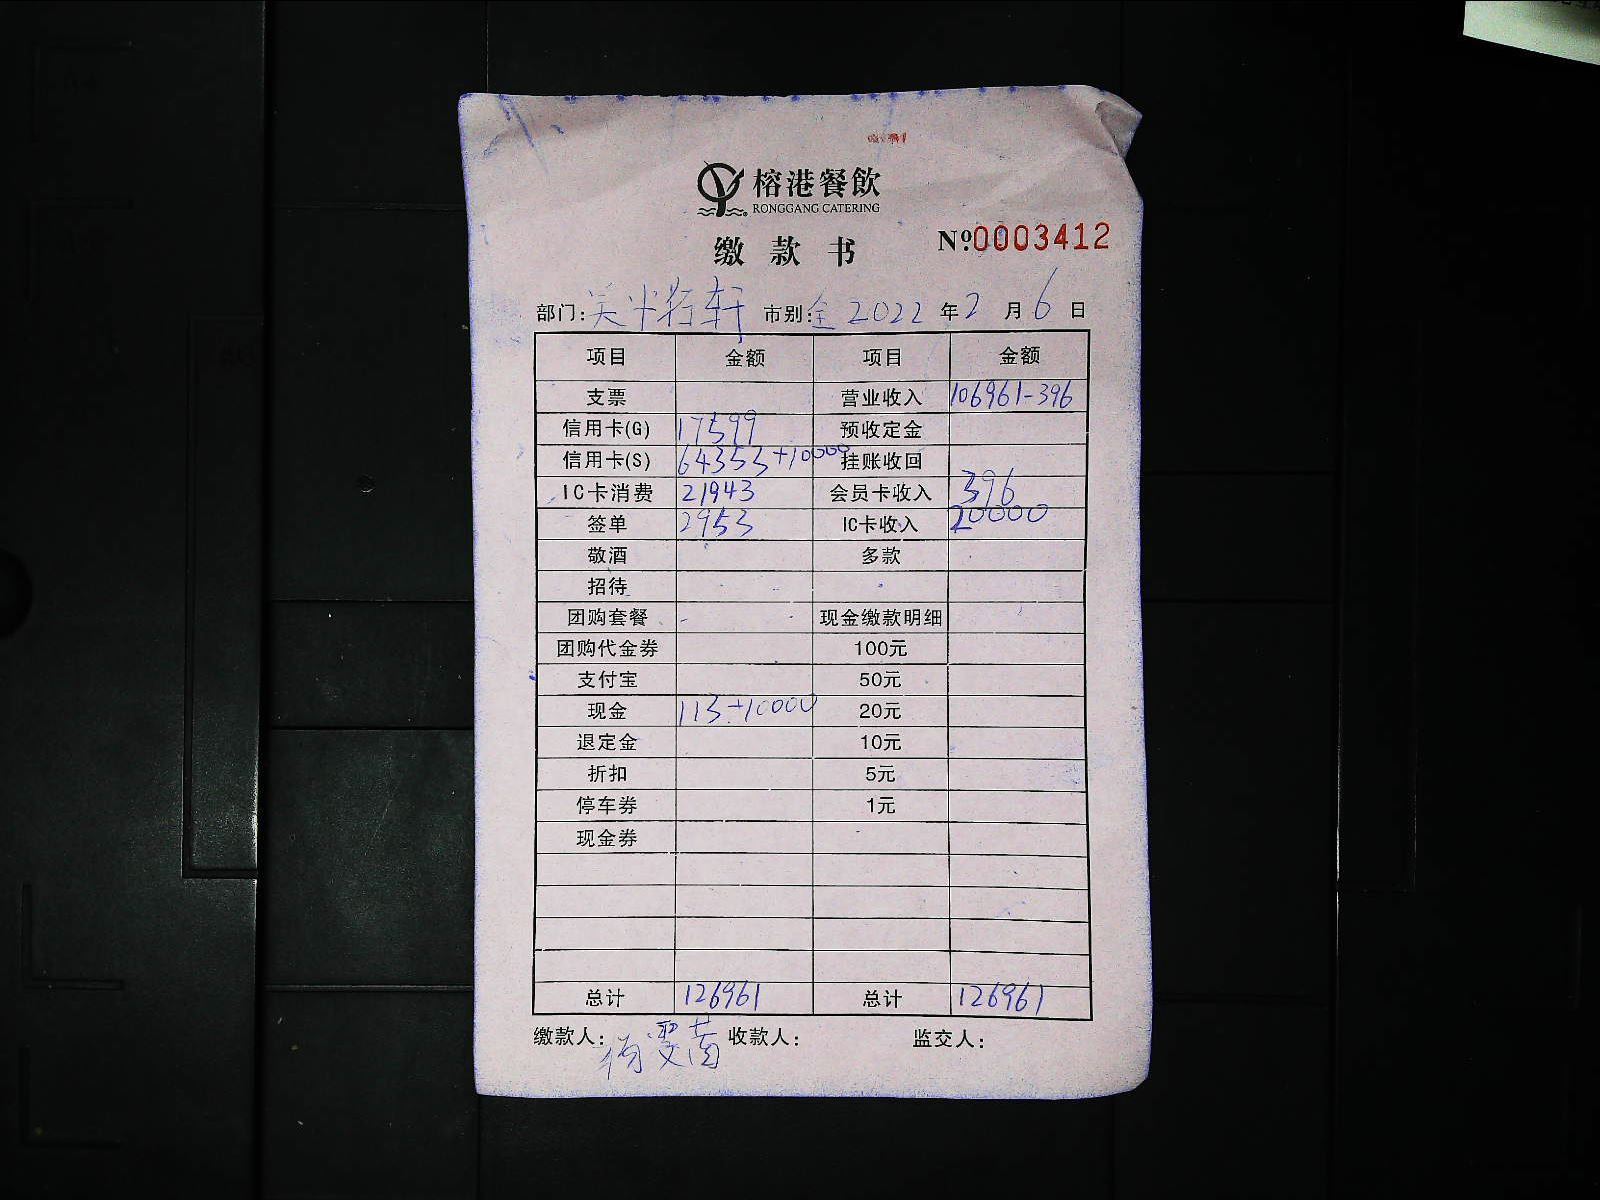 榕港餐飲
RONGGANG CATERING
缴款书 №0003412
部门: 市别:全 2022年2月6日
项目 金额 项目 金额
支票 营业收入 106961-396
信用卡(G) 17599 预收定金
信用卡(S) 64353+10000 挂账收回
IC卡消费 21943 会员卡收入 396
签单 2953 IC卡收入 20000
敬酒 多款
招待
团购套餐 现金缴款明细
团购代金券 100元
支付宝 50元
现金 113+10000 20元
退定金 10元
折扣 5元
停车券 1元
现金券
总计 126961 总计 126961
缴款人: 收款人: 监交人: